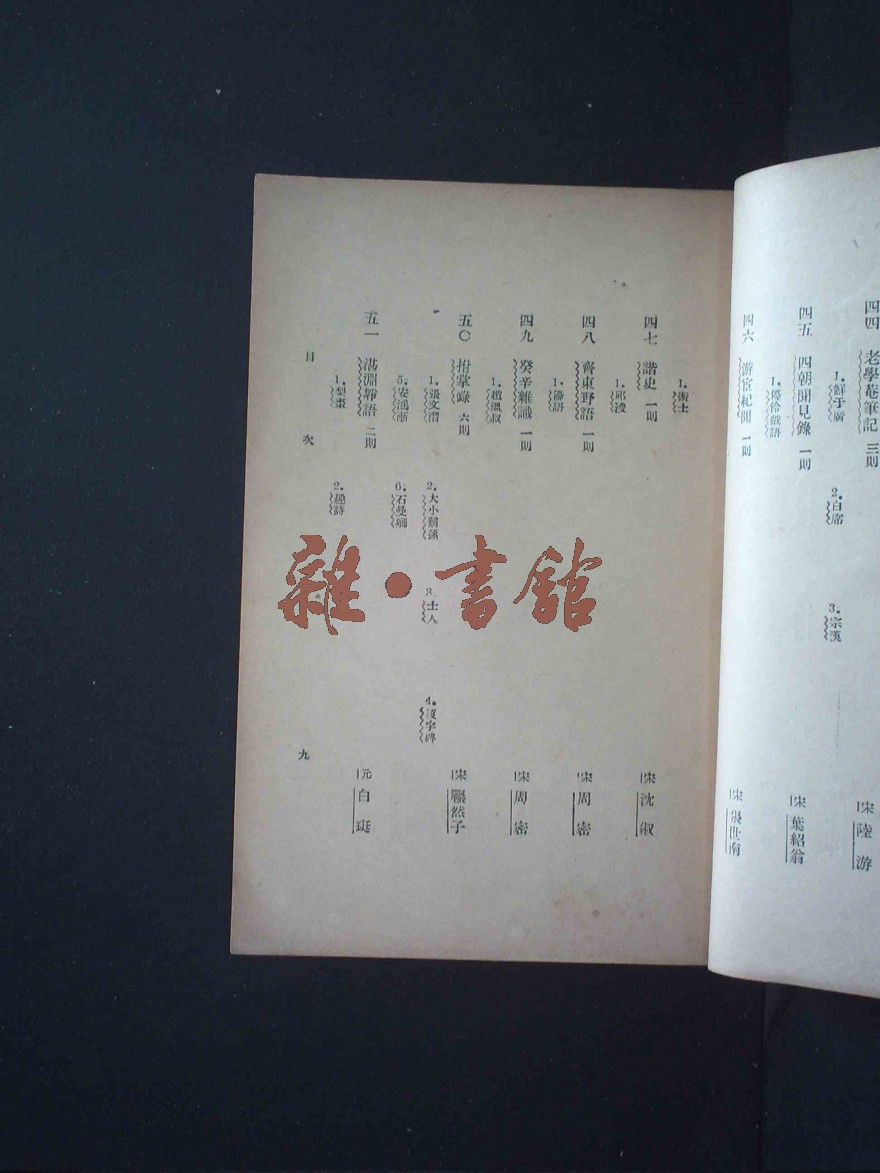 四四 老學菴筆記 三則 宋 陸游
1.鮮于廣 2.白席 3.宗漢
四五 四朝聞見錄 一則 宋 葉紹翁
1.優伶戲語
四六 游宦紀聞 一則 宋 張世南
1.術士
四七 諧史 一則 宋 沈俶
1.邱浚
四八 齊東野語 一則 宋 周密
1.優語
四九 癸辛雜識 一則 宋 周密
1.趙溫叔
五〇 拊掌錄 六則 宋 冁然子
1.張文潛 2.大小猢孫 3.士人 4.沒字碑
5.安鴻漸 6.石曼卿
五一 湛淵靜語 二則 元 白珽
1.梨棗 2.趣詩
目次 九
雜•書館